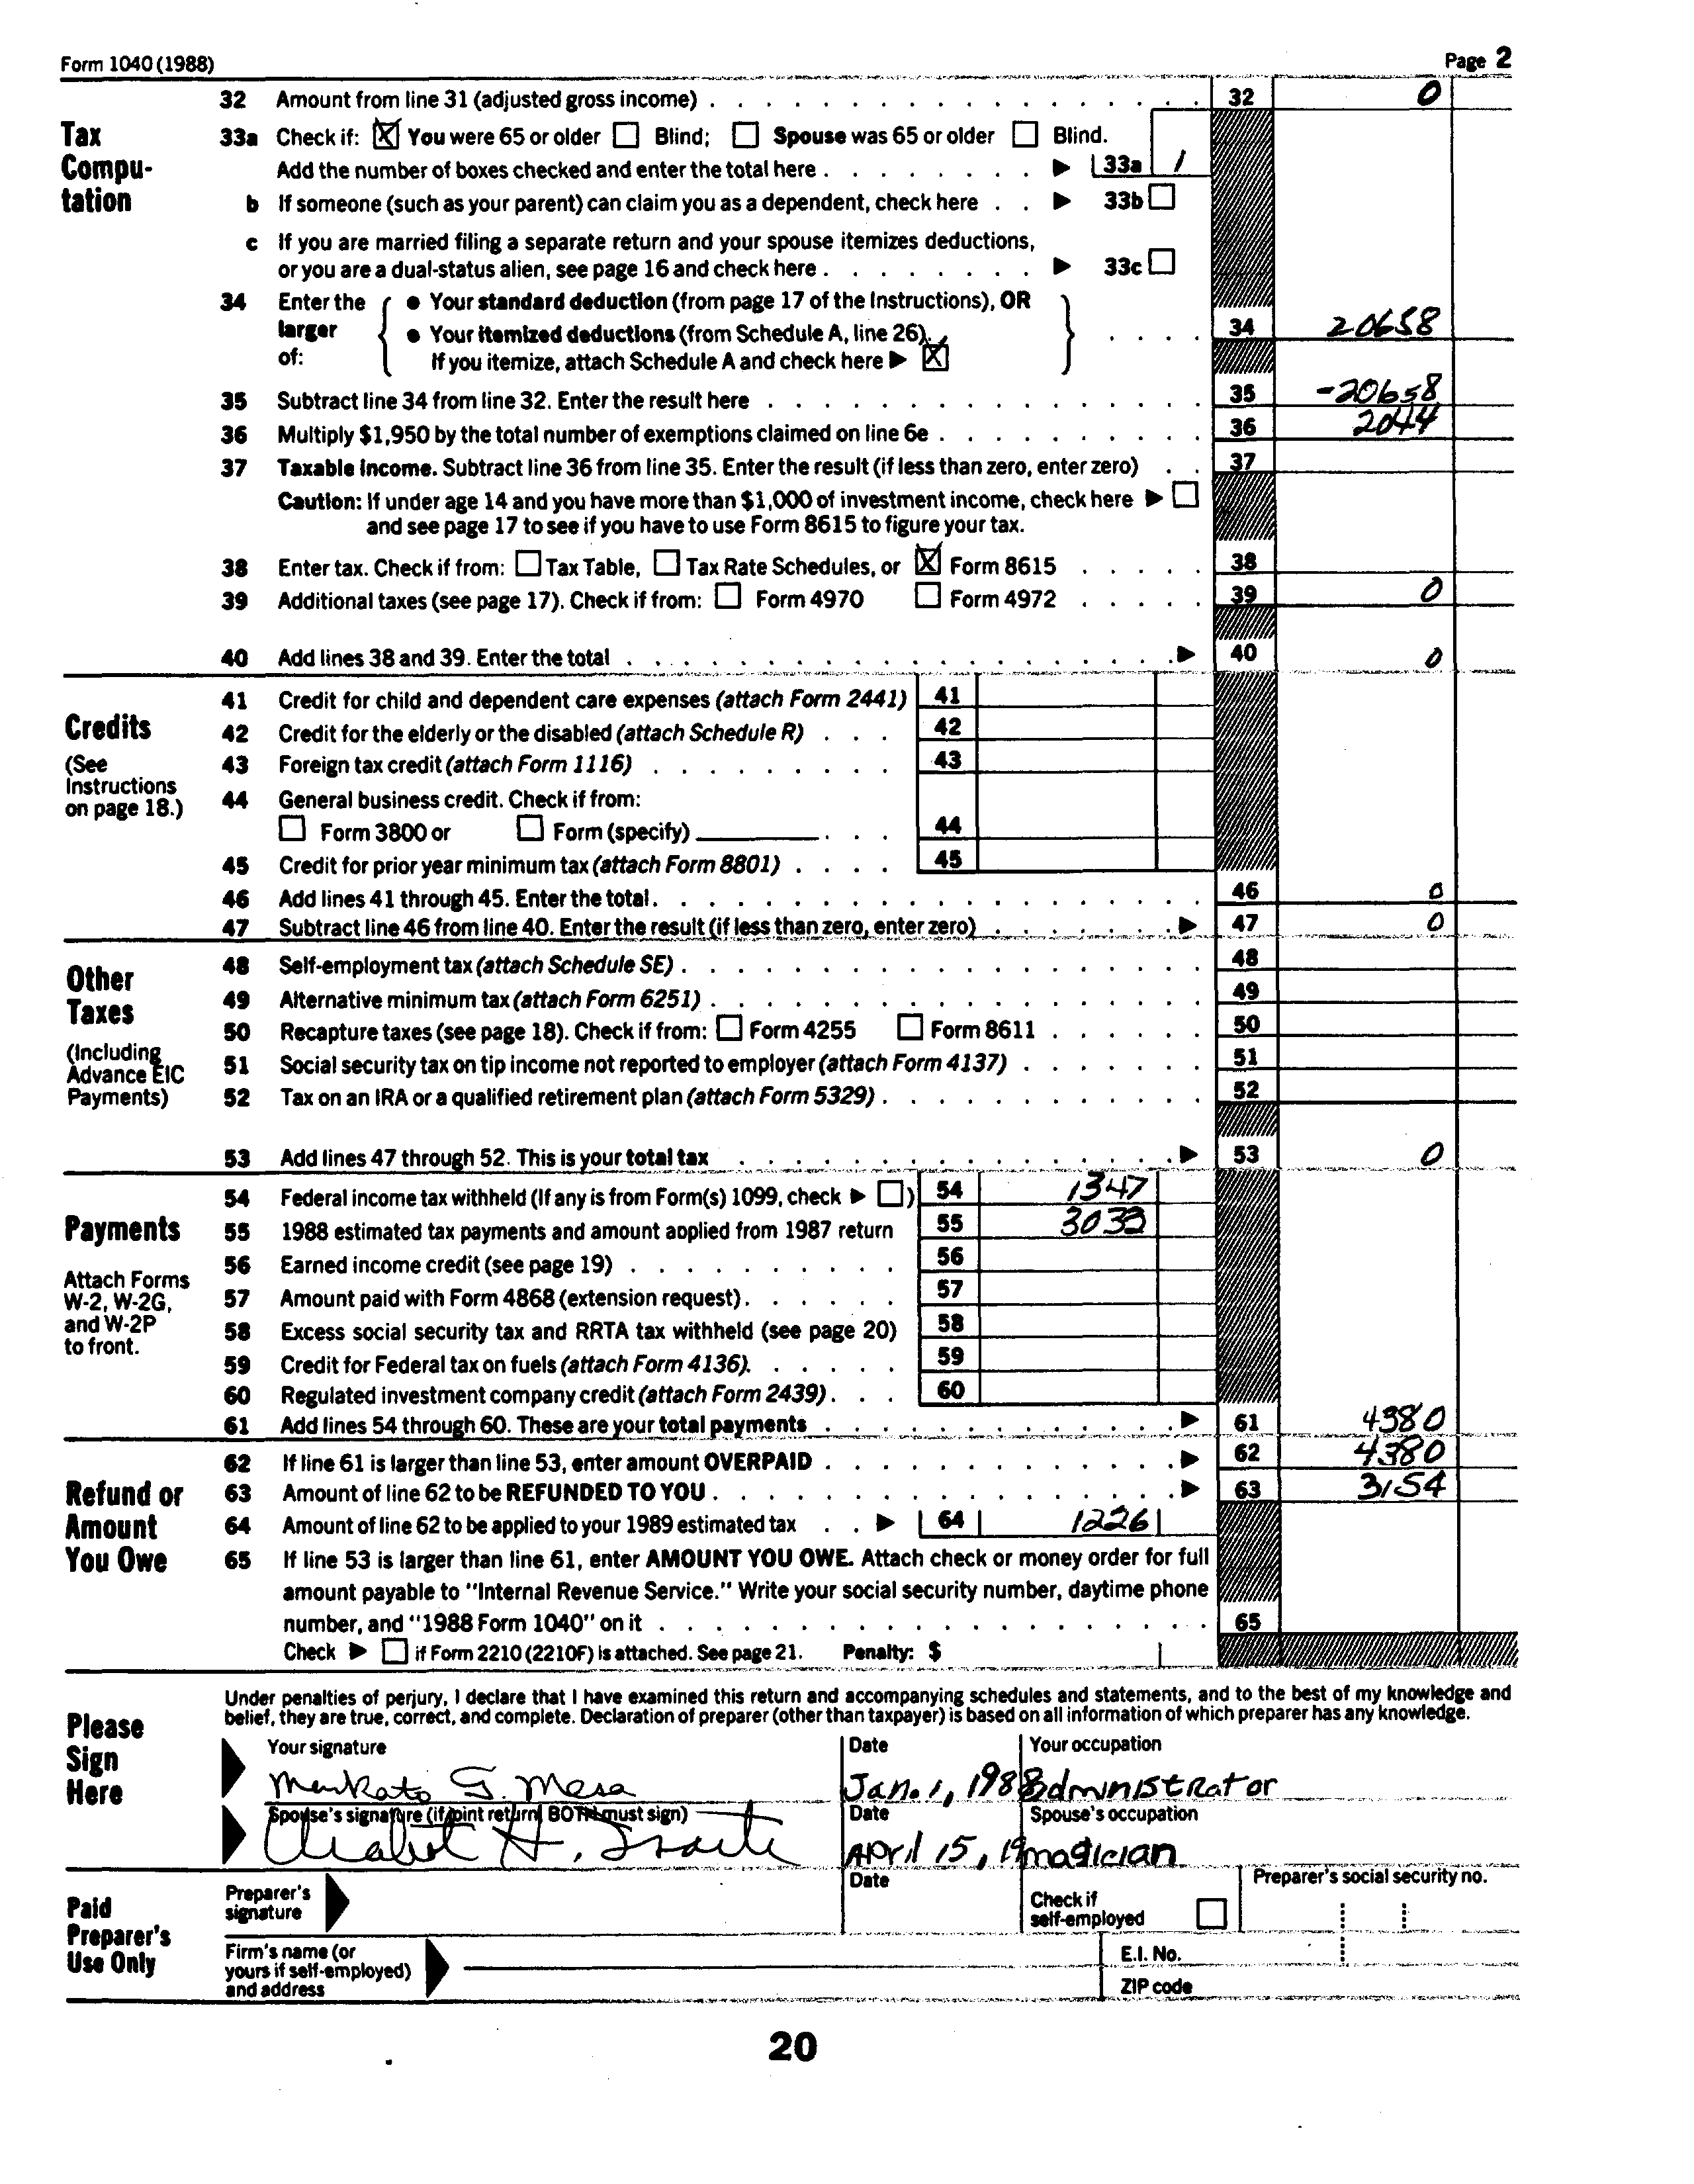 Form 1040 (1988) Page 2
Tax Compu-tation
32 Amount from line 31 (adjusted gross income) . . . 32 0
33a Check if: ☒ You were 65 or older ☐ Blind; ☐ Spouse was 65 or older ☐ Blind.
Add the number of boxes checked and enter the total here . . . ▶ 33a 1
b If someone (such as your parent) can claim you as a dependent, check here . . ▶ 33b ☐
c If you are married filing a separate return and your spouse itemizes deductions,
or you are a dual-status alien, see page 16 and check here . . . ▶ 33c ☐
34 Enter the larger of: { ● Your standard deduction (from page 17 of the Instructions), OR
● Your itemized deductions (from Schedule A, line 26). } . . . . 34 20658
If you itemize, attach Schedule A and check here ▶ ☒
35 Subtract line 34 from line 32. Enter the result here . . . 35 -20658
36 Multiply $1,950 by the total number of exemptions claimed on line 6e . . . 36 2044
37 Taxable income. Subtract line 36 from line 35. Enter the result (if less than zero, enter zero) . . 37
Caution: If under age 14 and you have more than $1,000 of investment income, check here ▶ ☐
and see page 17 to see if you have to use Form 8615 to figure your tax.
38 Enter tax. Check if from: ☐ Tax Table, ☐ Tax Rate Schedules, or ☒ Form 8615 . . . 38
39 Additional taxes (see page 17). Check if from: ☐ Form 4970 ☐ Form 4972 . . . 39 0
40 Add lines 38 and 39. Enter the total . . . ▶ 40 0
Credits
(See Instructions on page 18.)
41 Credit for child and dependent care expenses (attach Form 2441) 41
42 Credit for the elderly or the disabled (attach Schedule R) . . . 42
43 Foreign tax credit (attach Form 1116) . . . 43
44 General business credit. Check if from:
☐ Form 3800 or ☐ Form (specify) ______ . . . 44
45 Credit for prior year minimum tax (attach Form 8801) . . . . 45
46 Add lines 41 through 45. Enter the total . . . 46 0
47 Subtract line 46 from line 40. Enter the result (if less than zero, enter zero) . . . ▶ 47 0
Other Taxes
(Including Advance EIC Payments)
48 Self-employment tax (attach Schedule SE) . . . 48
49 Alternative minimum tax (attach Form 6251) . . . 49
50 Recapture taxes (see page 18). Check if from: ☐ Form 4255 ☐ Form 8611 . . . 50
51 Social security tax on tip income not reported to employer (attach Form 4137) . . . 51
52 Tax on an IRA or a qualified retirement plan (attach Form 5329) . . . 52
53 Add lines 47 through 52. This is your total tax . . . ▶ 53 0
Payments
Attach Forms W-2, W-2G, and W-2P to front.
54 Federal income tax withheld (If any is from Form(s) 1099, check ▶ ☐) 54 1347
55 1988 estimated tax payments and amount applied from 1987 return 55 3033
56 Earned income credit (see page 19) . . . 56
57 Amount paid with Form 4868 (extension request) . . . 57
58 Excess social security tax and RRTA tax withheld (see page 20) 58
59 Credit for Federal tax on fuels (attach Form 4136) . . . 59
60 Regulated investment company credit (attach Form 2439) . . . 60
61 Add lines 54 through 60. These are your total payments . . . ▶ 61 4380
Refund or Amount You Owe
62 If line 61 is larger than line 53, enter amount OVERPAID . . . ▶ 62 4380
63 Amount of line 62 to be REFUNDED TO YOU . . . ▶ 63 3154
64 Amount of line 62 to be applied to your 1989 estimated tax . . ▶ 64 1226
65 If line 53 is larger than line 61, enter AMOUNT YOU OWE. Attach check or money order for full
amount payable to "Internal Revenue Service." Write your social security number, daytime phone
number, and "1988 Form 1040" on it . . . 65
Check ▶ ☐ if Form 2210 (2210F) is attached. See page 21. Penalty: $
Please Sign Here
Under penalties of perjury, I declare that I have examined this return and accompanying schedules and statements, and to the best of my knowledge and
belief, they are true, correct, and complete. Declaration of preparer (other than taxpayer) is based on all information of which preparer has any knowledge.
Your signature Date Your occupation
Mankato G. Mesa Jan. 1, 1988 administrator
Spouse's signature (if joint return, BOTH must sign) Date Spouse's occupation
H. April 15, 19 magician
Paid Preparer's Use Only
Preparer's signature Date Check if self-employed ☐ Preparer's social security no.
Firm's name (or yours if self-employed) and address E.I. No.
ZIP code
20